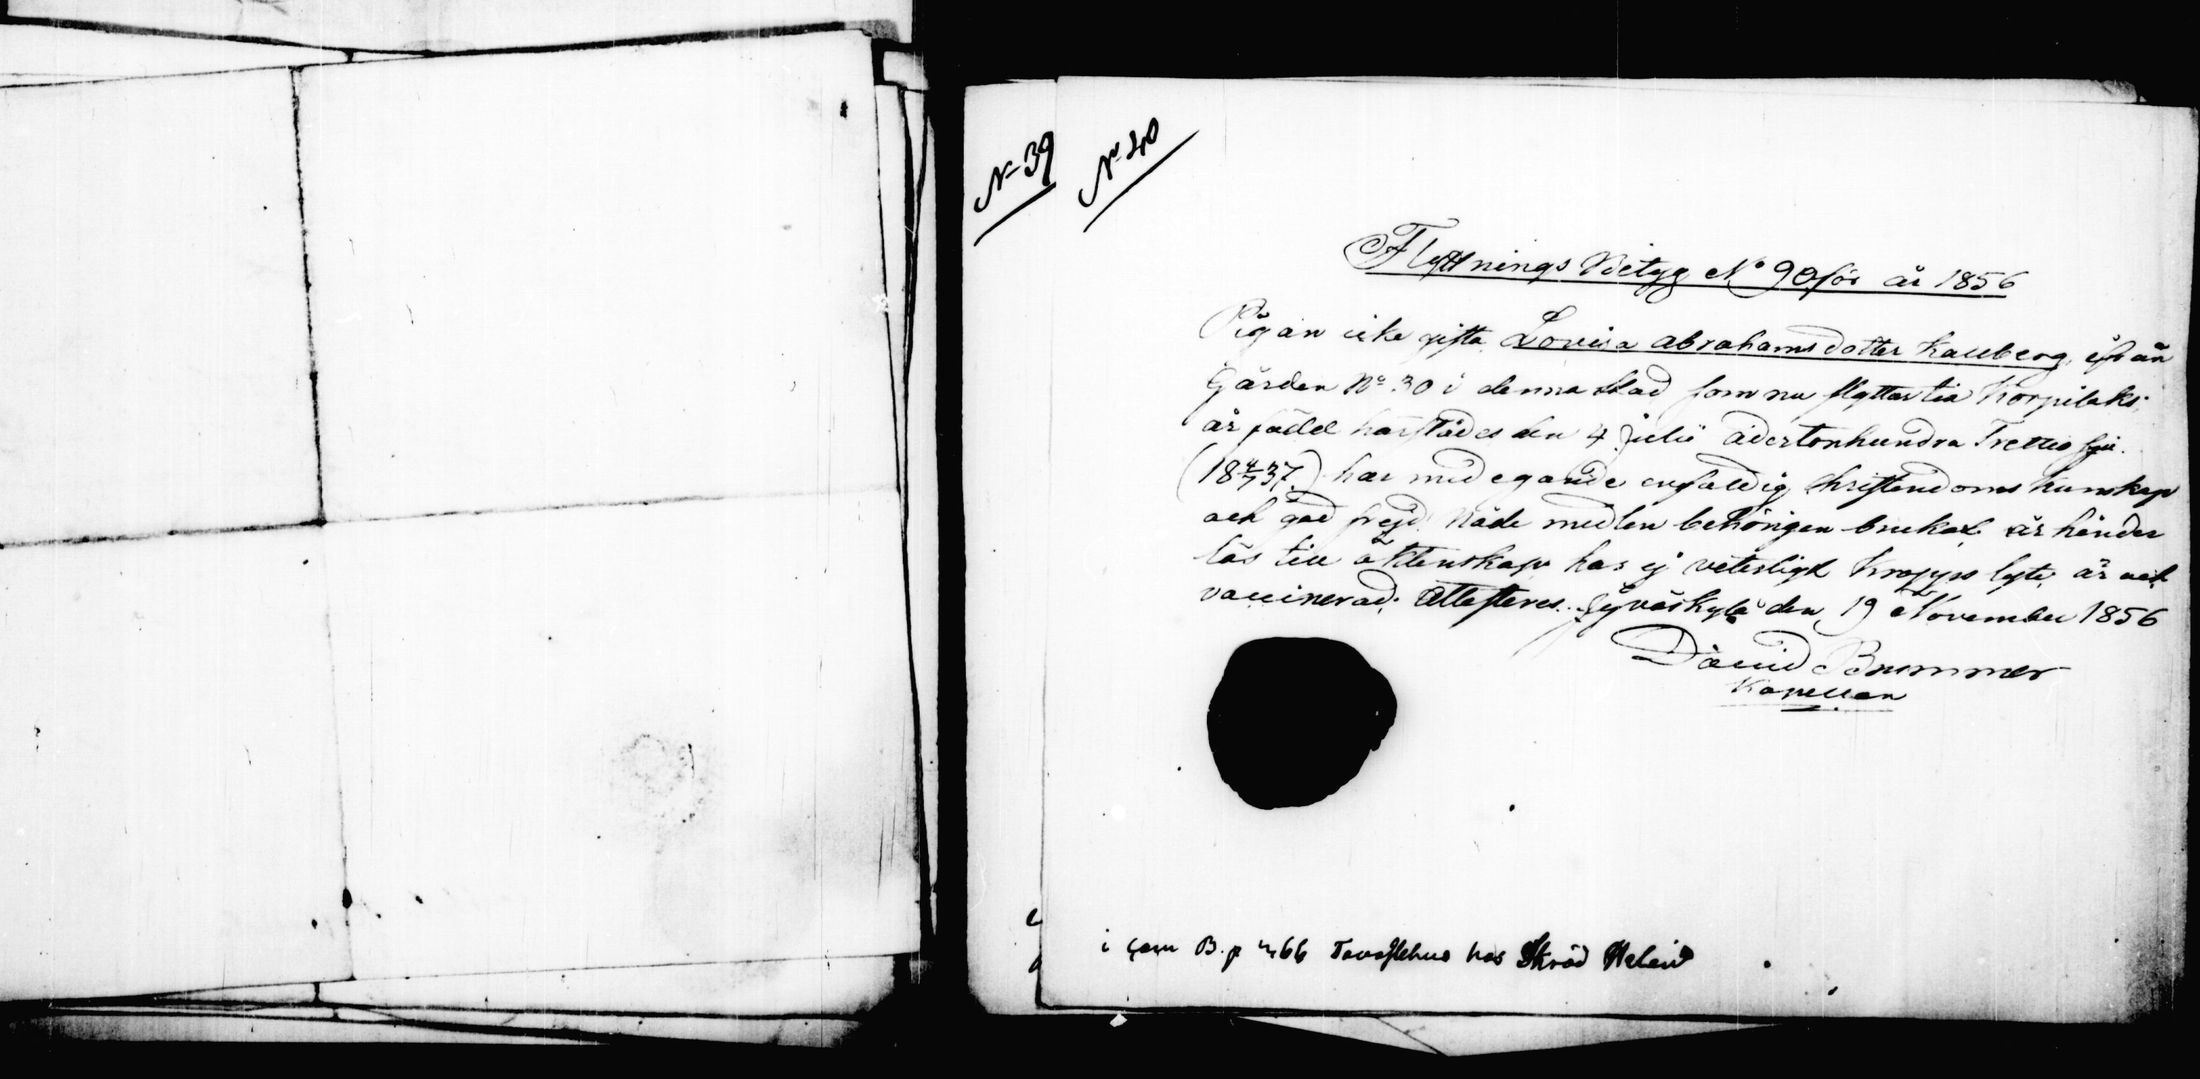 N 39
N 40
Flyttnings Betyg No 90 för år 1856
Pigan icke gifta Lovisa abrahamsdotter Kallberg, ifrån
Gården No 30 i denna Stad som nu flyttar till Korpilaks,
är född härstädes den 4 Julii adertonhundra Trettio sju.
(18 4/7 37.) har med egande enfaldig Christendoms kunskap
och god frejd Nåde medlen behörigen brukat är hinder
lös till äktenskap har ej veterligt kropps lyte, är ock
vaccinerad. Attesteres. Jyväskylä den 19 November 1856
David Brummer
Kapellan
i B. p 466 Tavastehus hos Skräd Helein